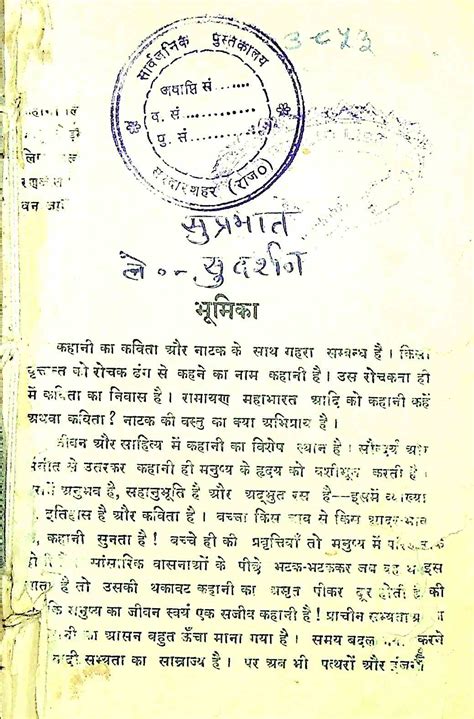 ३८५३
सार्वजनिक पुस्तकालय
अवाप्ति सं.
व. सं.
पु. सं.
सरदारशहर (राज०)
सुप्रभात
ले०-सुदर्शन
भूमिका
कहानी का कविता और नाटक के साथ गहरा सम्बन्ध है।
को रोचक ढंग से कहने का नाम कहानी है। उस रोचकता ही
में कविता का निवास है। रामायण महाभारत आदि को कहानी कहें
अथवा कविता? नाटक की वस्तु का क्या अभिप्राय है।
जीवन और साहित्य में कहानी का विशेष स्थान है।
से उतरकर कहानी ही मनुष्य के हृदय को वशीभूत करती है।
अनुभव है, सहानुभूति है और अद्भुत रस है—इसमें व्याख्या
इतिहास है और कविता है। बच्चा किस चाव से किस
कहानी सुनता है! बच्चे ही की प्रवृत्तियाँ तो मनुष्य में
सांसारिक वासनाओं के पीछे भटक-भटककर जब वह इस
है तो उसकी थकावट कहानी का अमृत पीकर दूर होती है की
कि मनुष्य का जीवन स्वयं एक सजीव कहानी है! प्राचीन सभ्यता
का आसन बहुत ऊँचा माना गया है। समय बदल गया करने
सभ्यता का साम्राज्य है। पर अब भी पत्थरों और